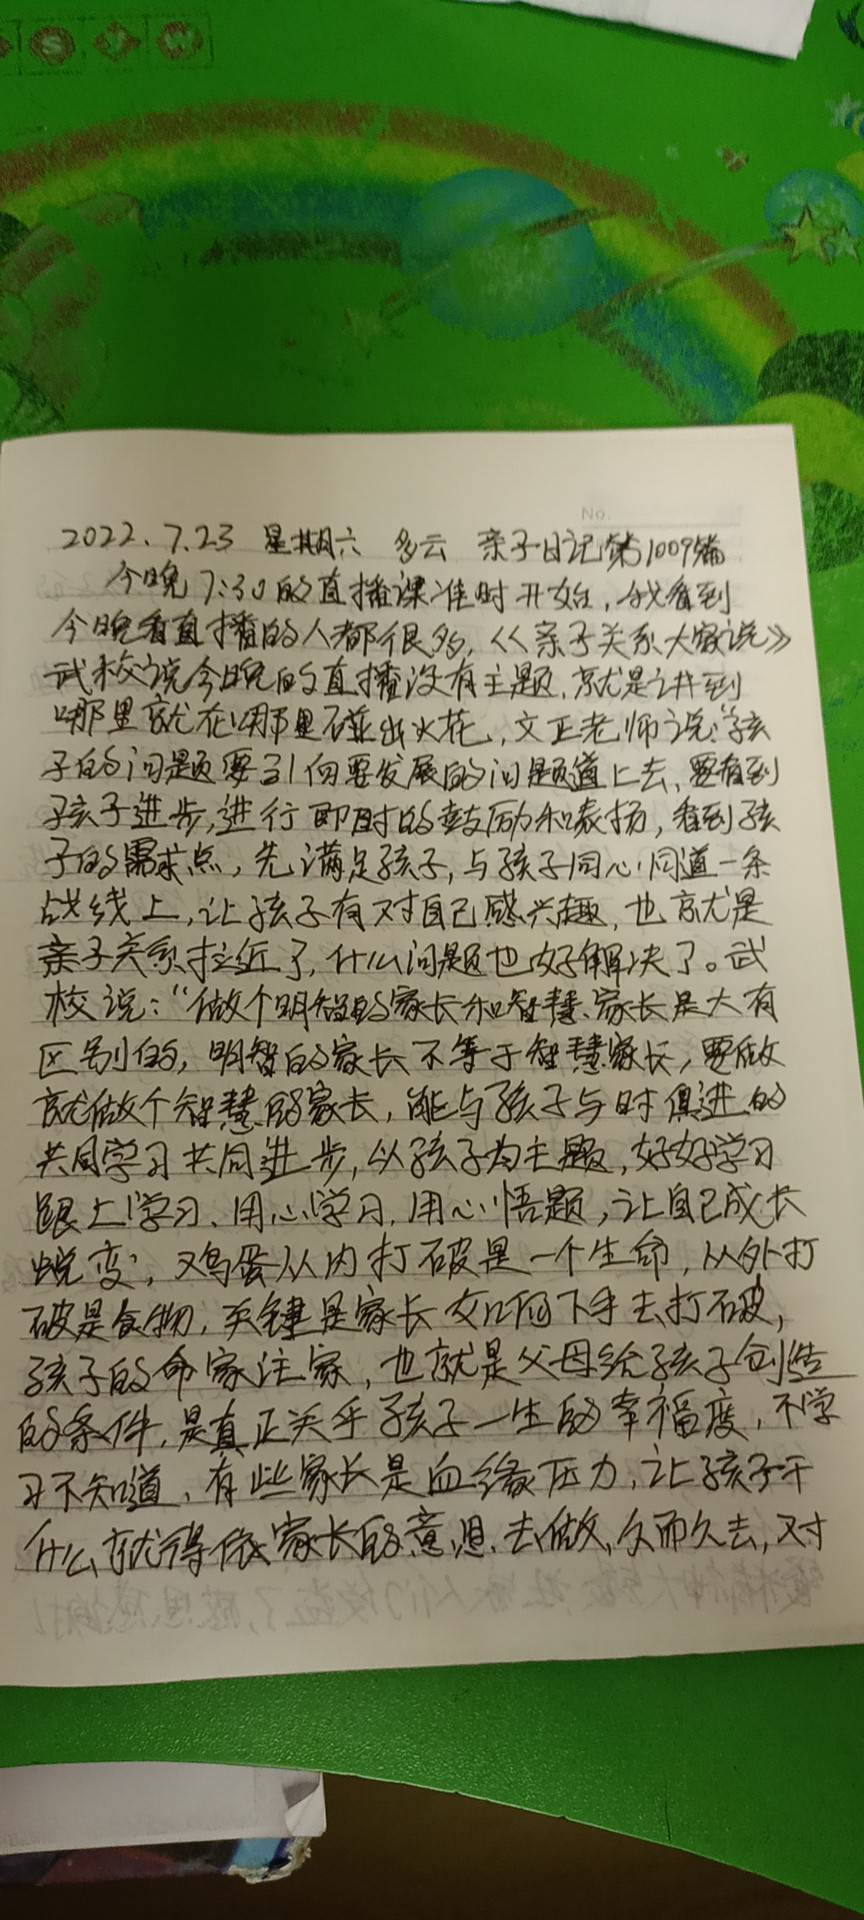 S Y W
No.
2022.7.23 星期六 多云 亲子日记第1009篇
今晚7:30的直播课准时开始,我看到
今晚看直播的人都很多,《亲子关系大家说》
武校说今晚的直播没有主题,就是讲到
哪里就在哪里碰出火花,文正老师说:"孩
子的问题要引向要发展的问题道上去,要看到
孩子进步,进行即时的鼓励和表扬,看到孩
子的需求点,先满足孩子,与孩子同心同道一条
战线上,让孩子有对自己感兴趣,也就是
亲子关系拉近了,什么问题也好解决了。武
校说:"做个明智的家长和智慧家长是大有
区别的,明智的家长不等于智慧家长,要做
就做个智慧的家长,能与孩子与时俱进的
共同学习共同进步,以孩子为主题,好好学习
跟上学习、用心学习,用心悟题,让自己成长
蜕变,鸡蛋从内打破是一个生命,从外打
破是食物,关键是家长如何下手去打破,
孩子的命家注家,也就是父母给孩子创造
的条件,是真正关乎孩子一生的幸福度,不学
习不知道,有些家长是血缘压力,让孩子干
什么就得依家长的意思去做,久而久去,对